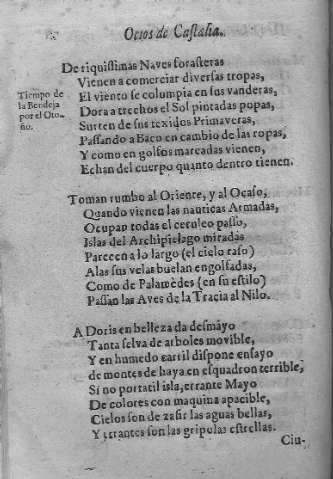 Ocios de Castalia.
De riquissimas Naves forasteras
Vienen a comerciar diversas tropas,
Tiempo de
la Bendeja
por el Oto-
ño.
El viento se columpia en sus vanderas,
Dora a trechos el Sol pintadas popas,
Surten de sus texidos Primaveras,
Passando a Baco en cambio de las ropas,
Y como en golfos marcadas vienen,
Echan del cuerpo quanto dentro tienen.
Toman rumbo al Oriente, y al Ocaso,
Quando vienen las nauticas Armadas,
Ocupan todas el ceruleo passo,
Islas del Archipielago miradas
Parecen a lo largo (el cielo raso)
Alas sus velas buelan engolfadas,
Como de Palamedes (en su estilo)
Passan las Aves de la Tracia al Nilo.
A Doris en belleza da desmayo
Tanta selva de arboles movible,
Y en humedo carril dispone ensayo
de montes de haya en esquadron terrible,
Si no portatil isla, errante Mayo
De colores con maquina apacible,
Cielos son de zafir las aguas bellas,
Y errantes son las gripolas estrellas.
Ciu-